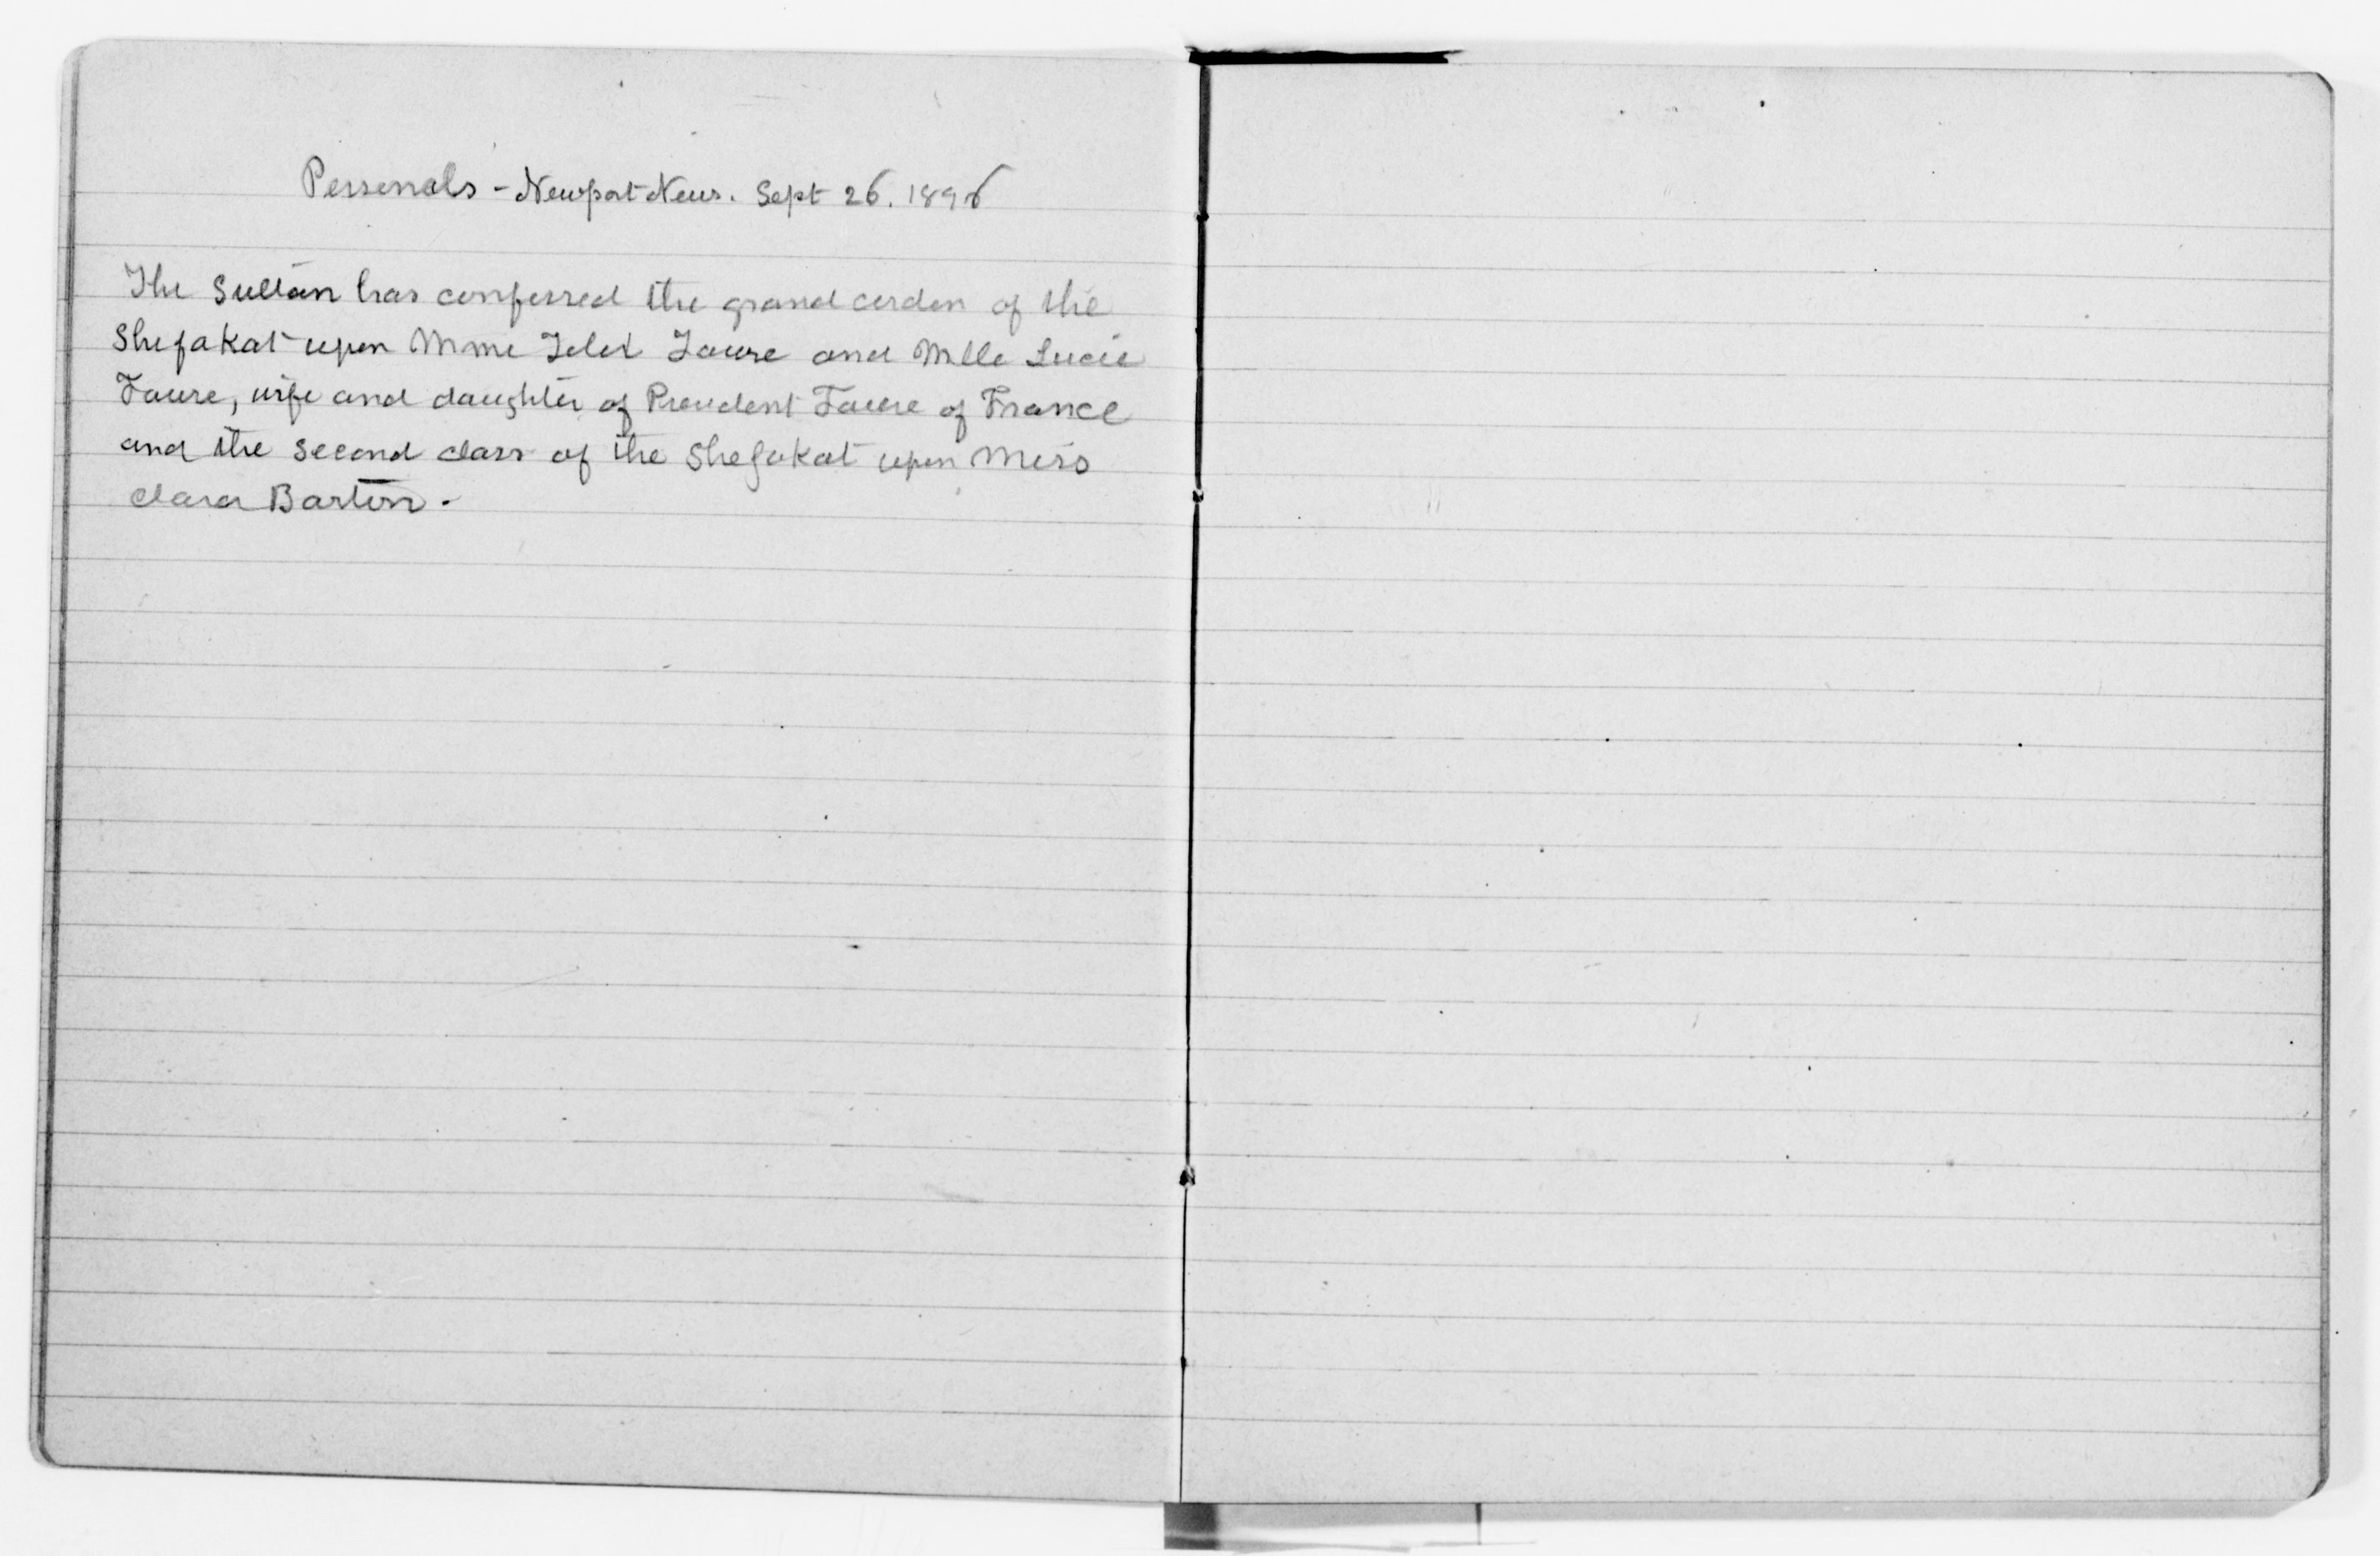 Personals - Newport News. Sept 26. 1896
The Sultan has conferred the grand cordon of the
Shefakat upon Mme Felix Faure and Mlle Lucie
Faure, wife and daughter of President Faure of France
and the second class of the Shefakat upon Miss
Clara Barton -